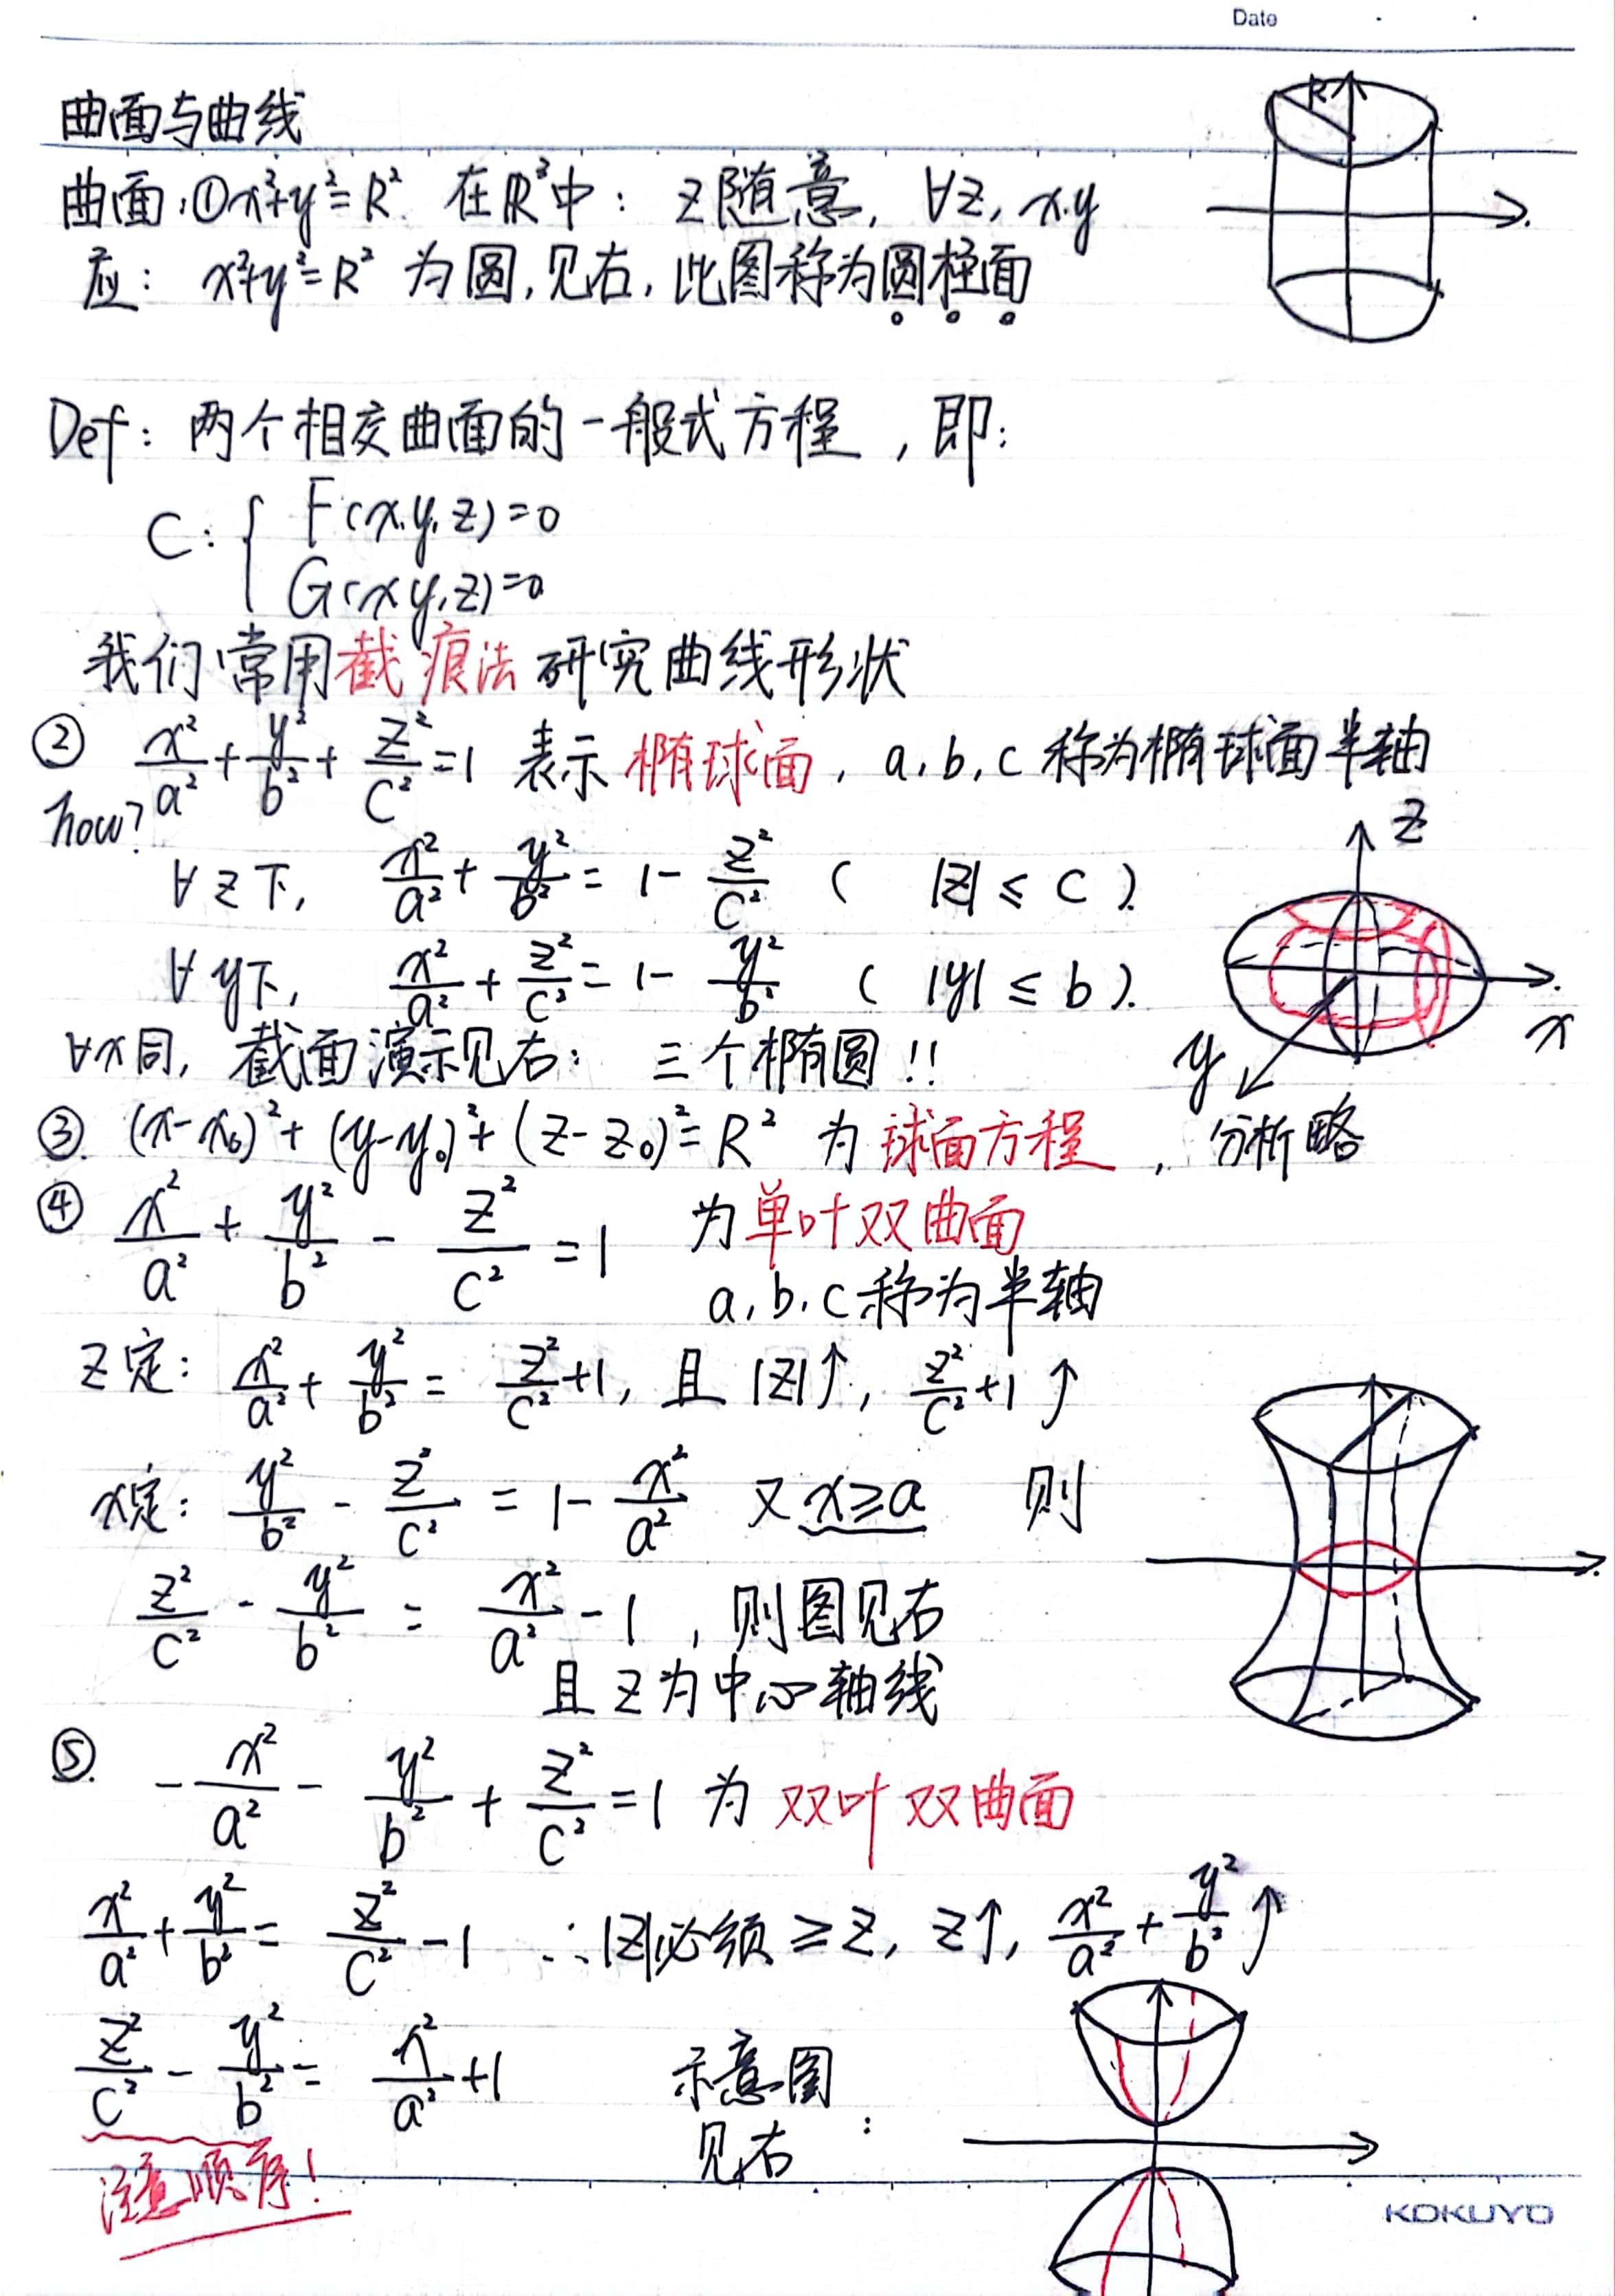 Date
曲面与曲线
曲面:①x²+y²=R². 在ℝ³中: z随意, ∀z, x.y
应: x²+y²=R² 为圆,见右,此图称为圆柱面
R
Def: 两个相交曲面的一般式方程,即:
C: { F(x,y,z)=0
G(x,y,z)=0
我们常用截痕法研究曲线形状
② x²/a²+y²/b²+z²/c²=1 表示椭球面, a,b,c 称为椭球面半轴
how?
∀z下, x²/a²+y²/b²=1-z²/c² ( |z|≤c ).
∀y下, x²/a²+z²/c²=1-y²/b² ( |y|≤b ).
∀x同, 截面演示见右: 三个椭圆!!
z
x
y
③ (x-x₀)²+(y-y₀)²+(z-z₀)²=R² 为球面方程, 分析略
④ x²/a²+y²/b²-z²/c²=1 为单叶双曲面
a,b,c称为半轴
z定: x²/a²+y²/b²=z²/c²+1, 且|z|↑, z²/c²+1↑
x定: y²/b²-z²/c²=1-x²/a² 又x≥a 则
z²/c²-y²/b²=x²/a²-1, 则图见右
且z为中心轴线
⑤ -x²/a²-y²/b²+z²/c²=1 为双叶双曲面
x²/a²+y²/b²=z²/c²-1 ∴|z|必须≥z, z↑, x²/a²+y²/b²↑
z²/c²-y²/b²=x²/a²+1 示意图
见右:
注意顺序!
KOKUYO